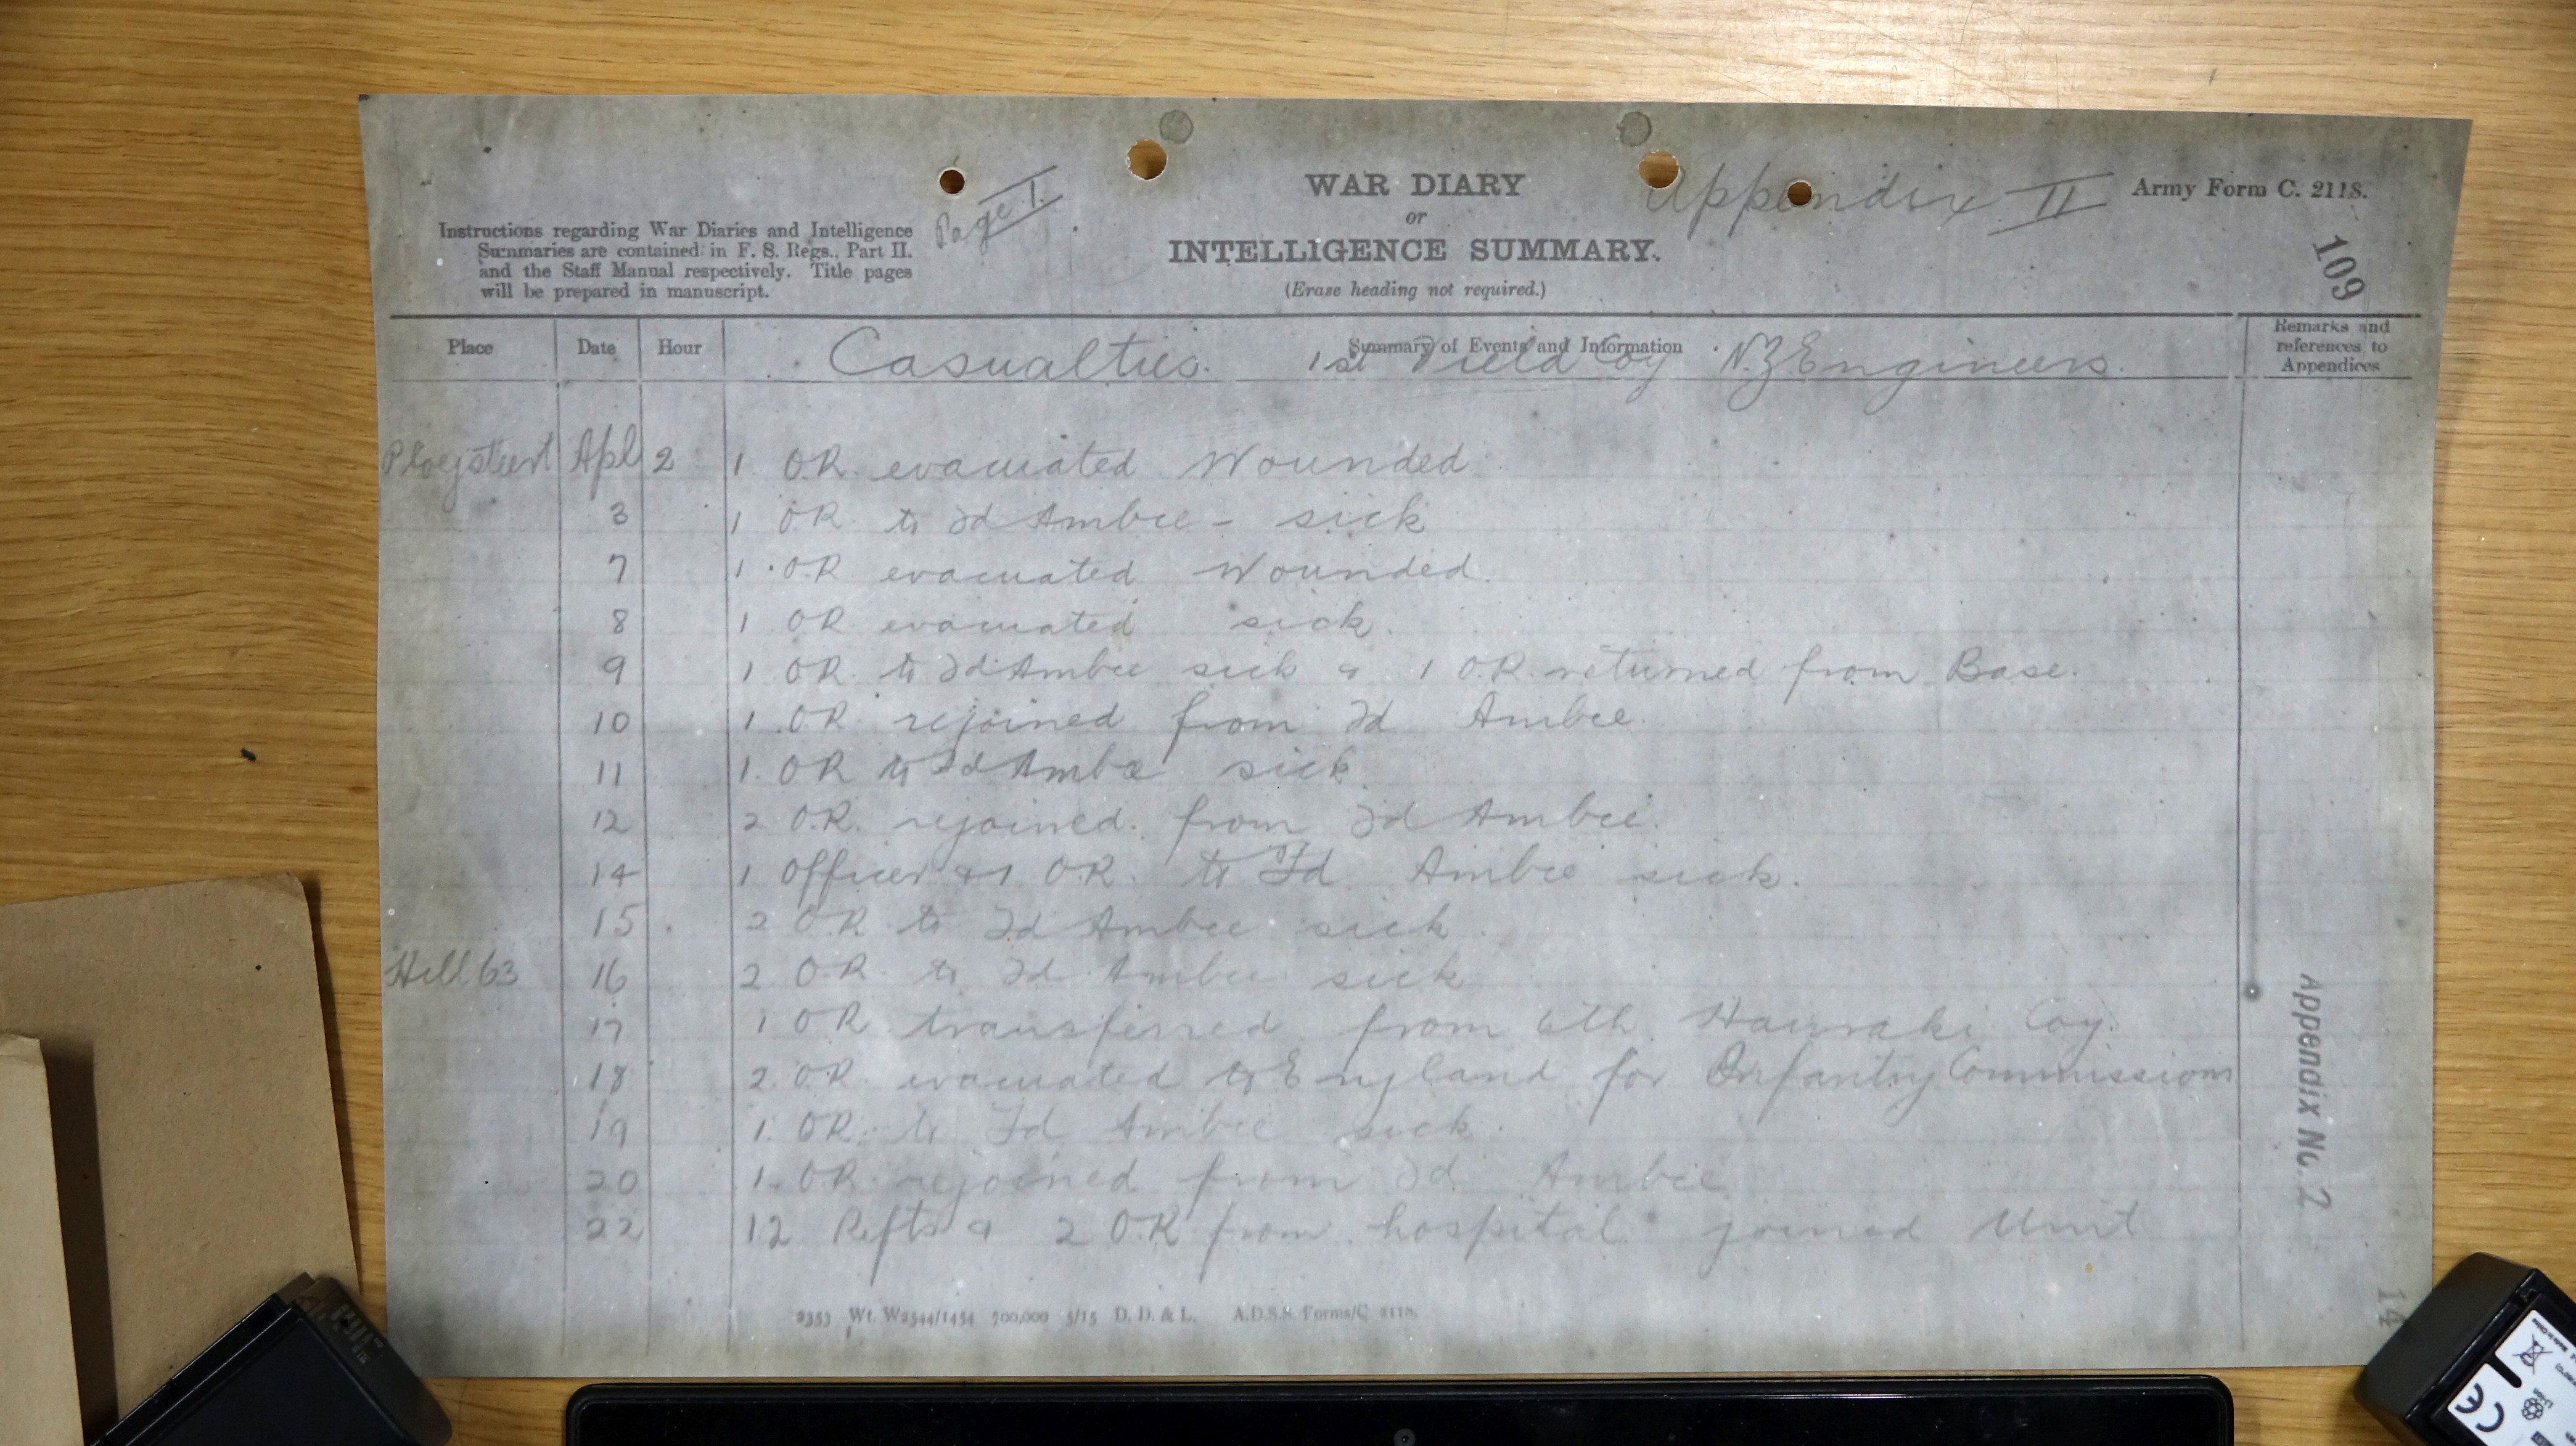 Page 1.
WAR DIARY
or
INTELLIGENCE SUMMARY.
(Erase heading not required.)
Appendix II
Army Form C. 2118.
109
Instructions regarding War Diaries and Intelligence
Summaries are contained in F. S. Regs., Part II.
and the Staff Manual respectively. Title pages
will be prepared in manuscript.
Place Date Hour Summary of Events and Information Remarks and references to Appendices
Casualties. 1st Field Coy N.Z Engineers.
Ploegsteert Apl 2 1 O.R. evacuated Wounded
3 1 OR to Fd Ambce - sick
7 1 O.R evacuated Wounded.
8 1 OR evacuated sick.
9 1 OR. to Fd Ambce sick & 1 O.R. returned from Base.
10 1 OR rejoined from Fd Ambce.
11 1. OR to Fd Ambce sick
12 2 O.R. rejoined from Fd Ambce.
14 1 Officer & 1 O.R. to Fd Ambce sick.
15 2 O.R. to Fd Ambce sick
Hill 63 16 2 O.R. to Fd Ambce sick
17 1 OR transferred from 6th Hauraki Coy.
18 2 O.R. evacuated to England for Infantry Commissions
19 1. OR. to Fd Ambce sick.
20 1. OR. rejoined from Fd Ambce
22 12 Refts & 2 O.R from hospital joined Unit
Appendix No. 2
14
2353 Wt. W2544/1454 700,000 5/15 D. D. & L. A.D.S.S. Forms/C. 2118.
Made in China
CE
Li-ion